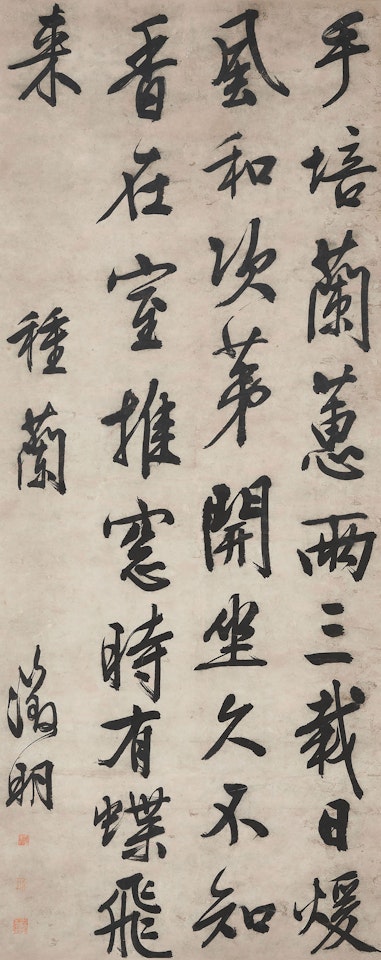 手培蘭蕙兩三載日煖
風和次第開坐久不知
香在室推窓時有蝶飛
来
種蘭
徵明